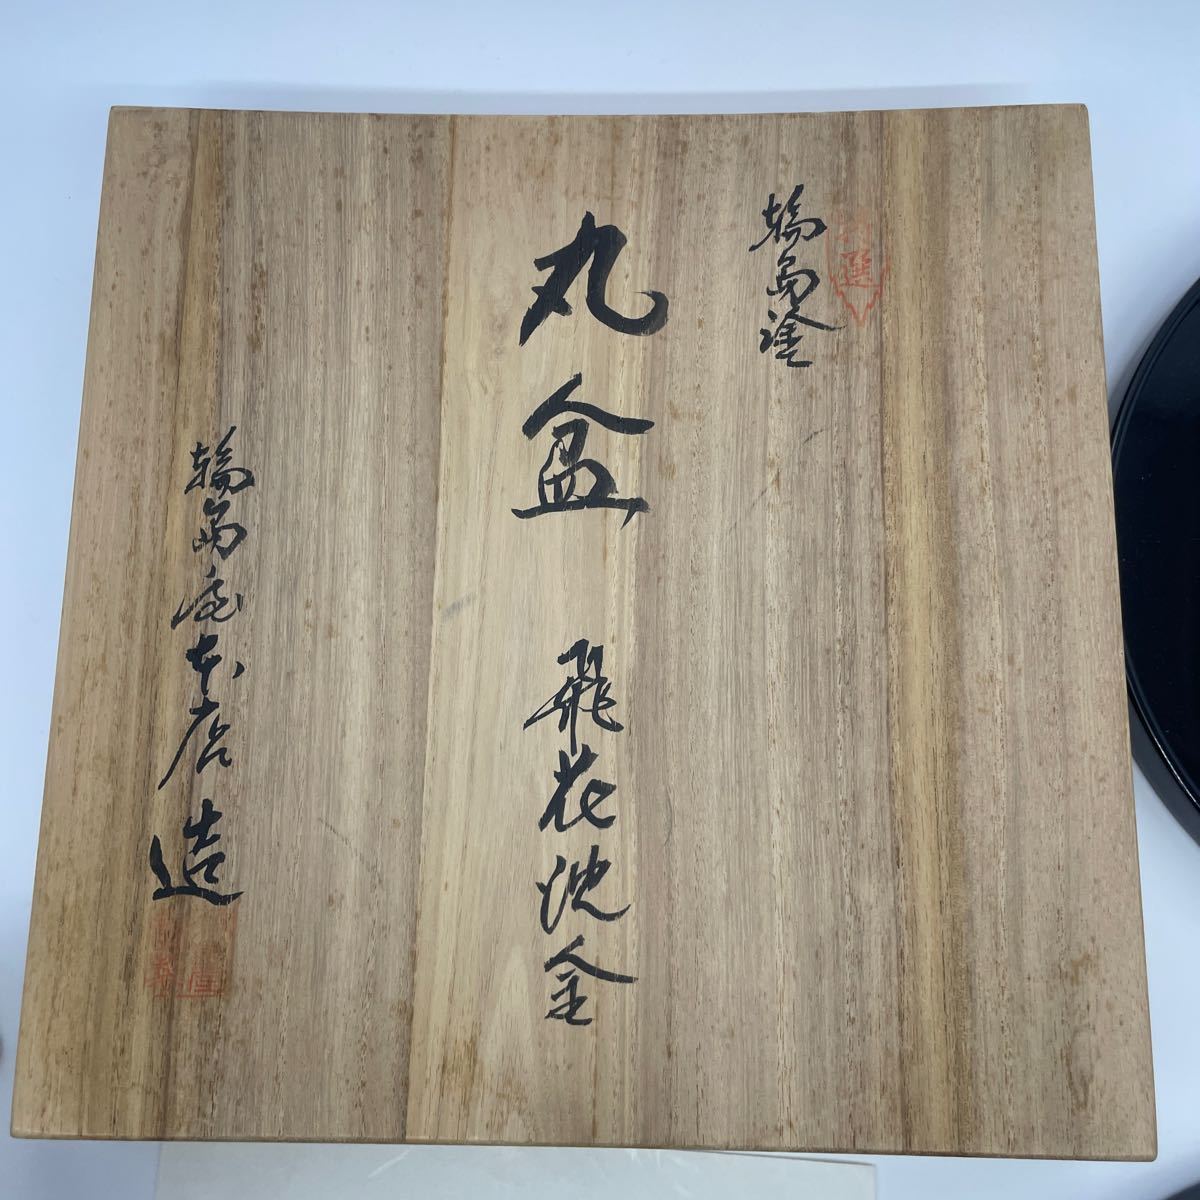 輪島塗
丸盆 飛花沈金
輪島屋本店造